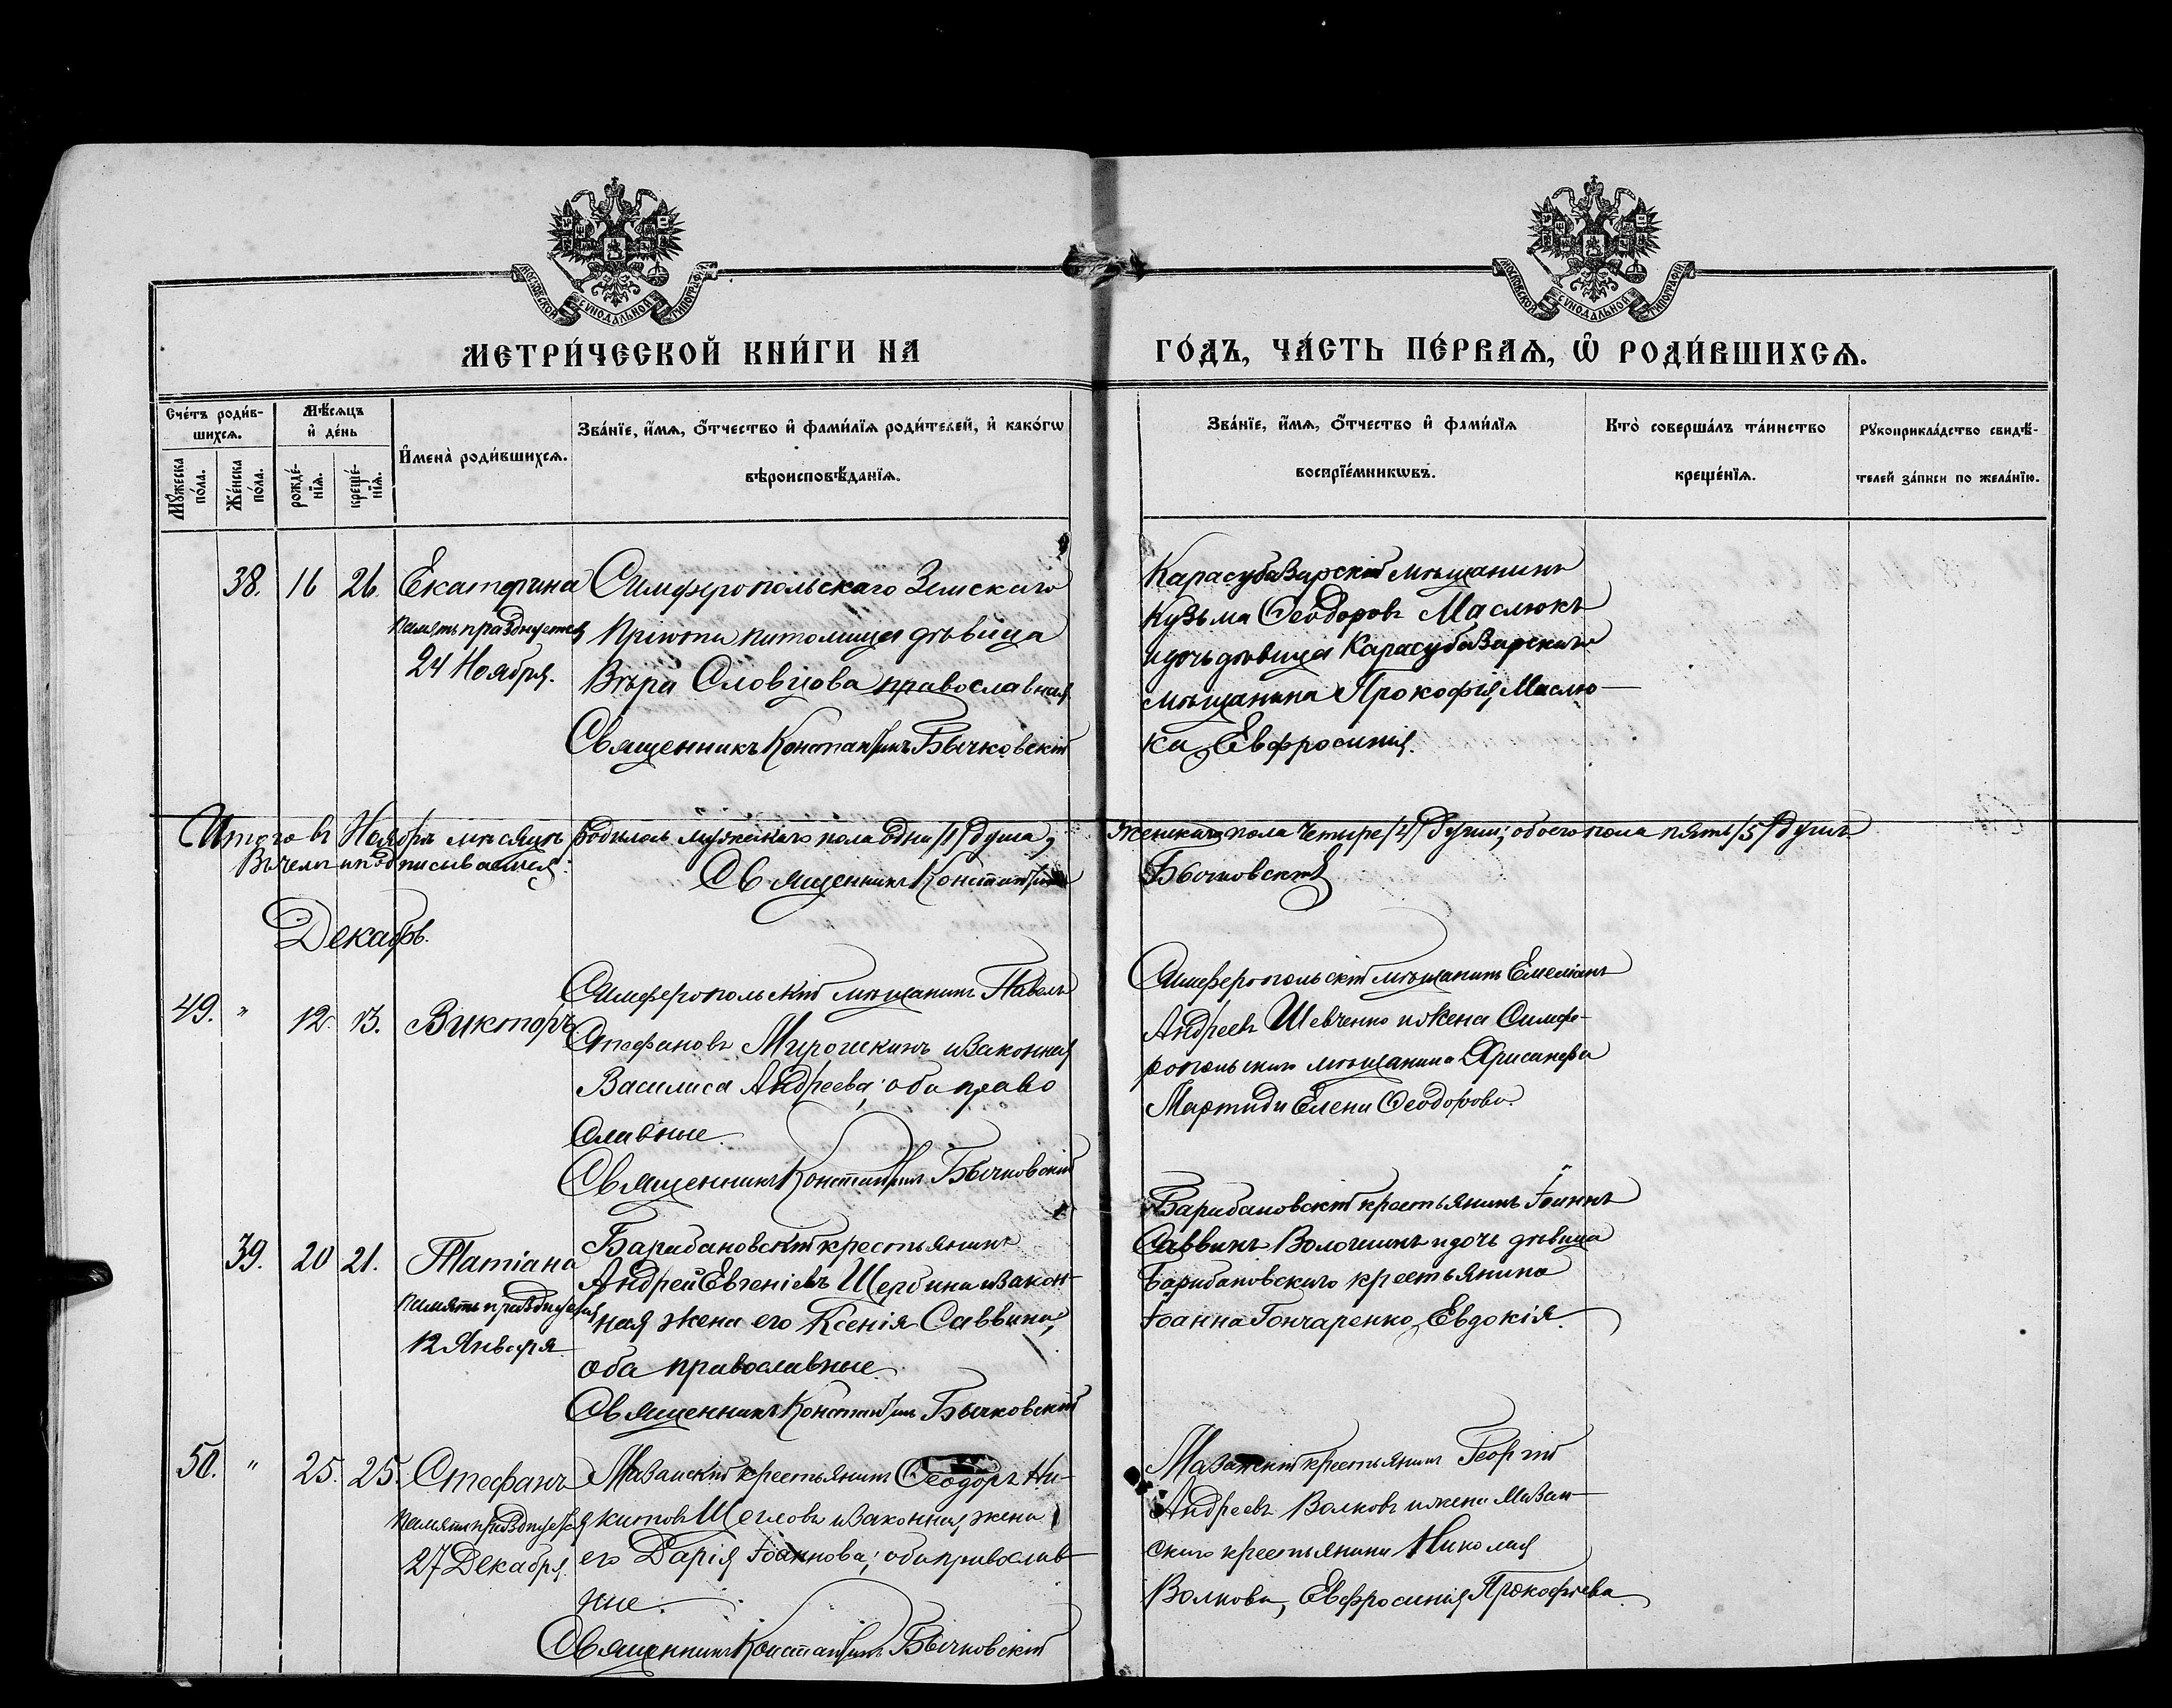 МОСКОВСКОЙ СѴНОДАЛЬНОЙ ТИПОГРАФІИ
МОСКОВСКОЙ СѴНОДАЛЬНОЙ ТИПОГРАФІИ
МЕТРИ́ЧЕСКОЙ КНИ́ГИ НА ГО́ДЪ, ЧА́СТЬ ПЕ́РВАѦ, Ѽ РОДИ́ВШИХСѦ.
Сче́тъ роди́в-
шихсѧ.
Мꙋ́жеска по́ла.
Же́нска по́ла.
Мѣ́сѧцъ
и҆ де́нь
рожде́-
нїѧ.
креще́-
нїѧ.
И҆мена̀ роди́вшихсѧ.
Зва́нїе, и҆́мѧ, ѻ҆́тчество и҆ фами́лїѧ роди́телей, и҆ како́гѡ
вѣроисповѣ́данїѧ.
Зва́нїе, и҆́мѧ, ѻ҆́тчество и҆ фами́лїѧ
воспрїе́мникѡвъ.
Кто̀ соверша́лъ та́инство
креще́нїѧ.
Рꙋкоприкла́дство свидѣ́-
телей за́писи по жела́нїю.
38. 16 26. Екатерина
память празднуется
24 Ноября.
Симферопольскаго Земскаго
Пріюта питомица дѣвица
Вѣра Словцова православная
Священникъ Константинъ Бычковскій
Карасубазарскій мѣщанинъ
Кузьма Ѳеодоровъ Маслюкъ
и дочь дѣвица Карасубазарскаго
мѣщанина Прокофія Маслю-
ка, Евфросинія.
Итого въ Ноябрѣ мѣсяцѣ родилось мужескаго пола одна /1/ душа, женскаго пола четыре /4/ души; обоего пола пять /5/ душъ
В чемъ и подписываемся:
Священникъ Константинъ Бычковскій
Декабрь.
49. " 12. 13. Викторъ
Симферопольскій мѣщанинъ Павелъ
Стефановъ Мирошкинъ и законная
Василиса Андреева; оба право
славные.
Священникъ Константинъ Бычковскій
Симферопольскій мѣщанинъ Емеліанъ
Андреевъ Шевченко и жена Симфе-
ропольскаго мѣщанина Хрисанфа
Мартиди Елена Ѳеодорова.
39. 20 21. Татіана
память празднуется
12 Января
Барабановскій крестьянинъ
Андрей Евгеніевъ Щербина и закон-
ная жена его Ксенія Саввина;
оба православные.
Священникъ Константинъ Бычковскій
Барабановскій крестьянинъ Іоаннъ
Саввинъ Волошинъ и дочь дѣвица
Барабановскаго крестьянина
Іоанна Гончаренко, Евдокія.
50. " 25. 25. Стефанъ
память празднуется
27 Декабря.
Мазанскій крестьянинъ Ѳеодоръ Ни-
китовъ Щегловъ и законная жена
его Дарія Іоаннова; оба православ-
ные.
Священникъ Константинъ Бычковскій
Мазанскій крестьянинъ Георгій
Андреевъ Волковъ и жена Мазан-
скаго крестьянина Николая
Волкова, Евфросинія Прокофьева.